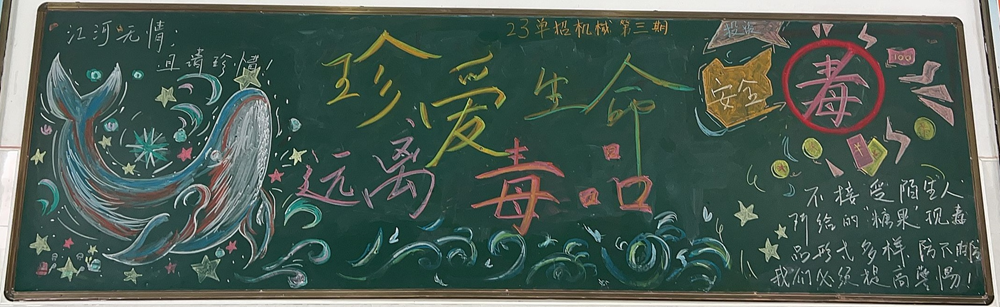 江河无情;
且请珍惜!
23单招机械第三期
珍爱生命
远离毒品
安全
毒
100
¥
不接受陌生人
所给的“糖果”现毒
品形式多样,防不胜防
我们必须提高警惕!